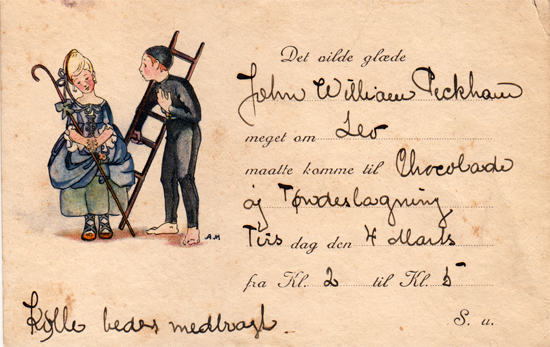 Det vilde glæde
John William Peckham
meget om Leo
maatte komme til Chocolade
og Tøndeslagning
Tirs dag den 4 Marts
fra Kl. 2 til Kl. 5
S. u.
Kølle bedes medbragt.
A.M